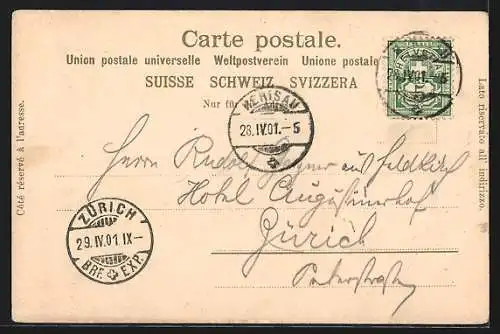 Carte postale.
Union postale universelle Weltpostverein Unione postale
SUISSE SCHWEIZ SVIZZERA
Nur für
HELVETIA
IV.01.-5
HERISAU
28.IV.01.-5
Côté réservé à l'adresse.
Lato riservato all' indirizzo.
Herrn Rudolf aus Feldkirch
Hotel Augustinerhof
Zürich
Peterstrasse
ZÜRICH
29.IV.01.IX-
BRF. EXP.